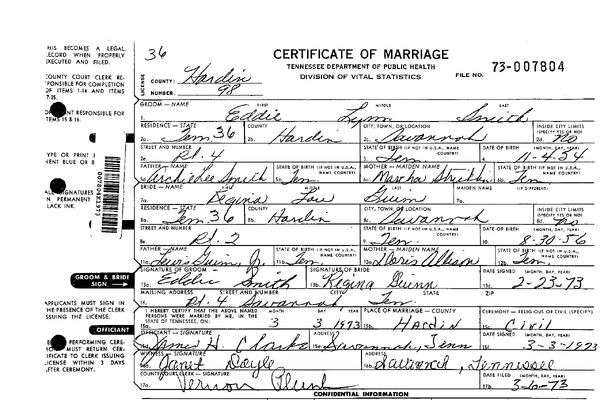 HIS BECOMES A LEGAL
ECORD WHEN PROPERLY
EXECUTED AND FILED.
OUNTY COURT CLERK RE-
PONSIBLE FOR COMPLETION
OF ITEMS 1-14 AND ITEMS
RESPONSIBLE FOR
ITEMS 15 & 16.
YPE OR PRINT
ENT BLUE OR B
SIGNATURES
N PERMANENT
LACK INK.
0078043973
GROOM & BRIDE
SIGN
APPLICANTS MUST SIGN IN
THE PRESENCE OF THE CLERK
ISSUING THE LICENSE.
OFFICIANT
PERFORMING CERE-
MUST RETURN CER-
IFICATE TO CLERK ISSUING
LICENSE WITHIN 3 DAYS
FTER CEREMONY.
36
CERTIFICATE OF MARRIAGE
TENNESSEE DEPARTMENT OF PUBLIC HEALTH
DIVISION OF VITAL STATISTICS
FILE NO. 73-007804
LICENSE
COUNTY: Hardin
NUMBER: 98
GROOM — NAME FIRST MIDDLE LAST
1. Eddie Lynn Smith
RESIDENCE — STATE COUNTY CITY, TOWN, OR LOCATION INSIDE CITY LIMITS (SPECIFY YES OR NO)
2a. Tenn 36 2b. Hardin 2c. Savannah 2d. No
STREET AND NUMBER STATE OF BIRTH (IF NOT IN U.S.A., NAME COUNTRY) DATE OF BIRTH (MONTH, DAY, YEAR)
2e. Rt. 4 3. Ten 4. 11-4-54
FATHER — NAME STATE OF BIRTH (IF NOT IN U.S.A., NAME COUNTRY) MOTHER — MAIDEN NAME STATE OF BIRTH (IF NOT IN U.S.A., NAME COUNTRY)
Smith Ten Martha Ten
BRIDE — NAME FIRST MIDDLE LAST MAIDEN NAME (IF DIFFERENT)
Regina Lou Guinn
RESIDENCE — STATE COUNTY CITY, TOWN, OR LOCATION INSIDE CITY LIMITS (SPECIFY YES OR NO)
8a. Ten. 36 8b. Hardin 8c. Savannah 8d. No
STREET AND NUMBER STATE OF BIRTH (IF NOT IN U.S.A., NAME COUNTRY) DATE OF BIRTH (MONTH, DAY, YEAR)
8e. Rt. 2 9. Ten. 10. 8-30-56
FATHER — NAME STATE OF BIRTH (IF NOT IN U.S.A., NAME COUNTRY) MOTHER — MAIDEN NAME STATE OF BIRTH (IF NOT IN U.S.A., NAME COUNTRY)
Guinn Jr. 11b. Ten. Doris Allison 12b. Ten.
SIGNATURE OF GROOM SIGNATURE OF BRIDE DATE SIGNED (MONTH, DAY, YEAR)
13a. Eddie Smith 13b. Regina Guinn 2-23-73
MAILING ADDRESS STREET AND NUMBER CITY STATE ZIP
14. Rt. 4 Savannah Ten
I HEREBY CERTIFY THAT THE ABOVE NAMED PERSONS WERE MARRIED BY ME, IN THE STATE OF TENNESSEE, ON: (MONTH, DAY, YEAR) PLACE OF MARRIAGE — COUNTY CEREMONY — RELIGIOUS OR CIVIL (SPECIFY)
15a. 3 3 1973 15b. Hardin 15c. Civil
OFFICIANT — SIGNATURE ADDRESS DATE SIGNED (MONTH, DAY, YEAR)
James H. Savannah, Tenn 3-3-1973
WITNESS — SIGNATURE ADDRESS
Janet Doyle 16b. Savannah, Tennessee
COUNTY COURT CLERK — SIGNATURE DATE FILED (MONTH, DAY, YEAR)
17a. Vernon 73
CONFIDENTIAL INFORMATION